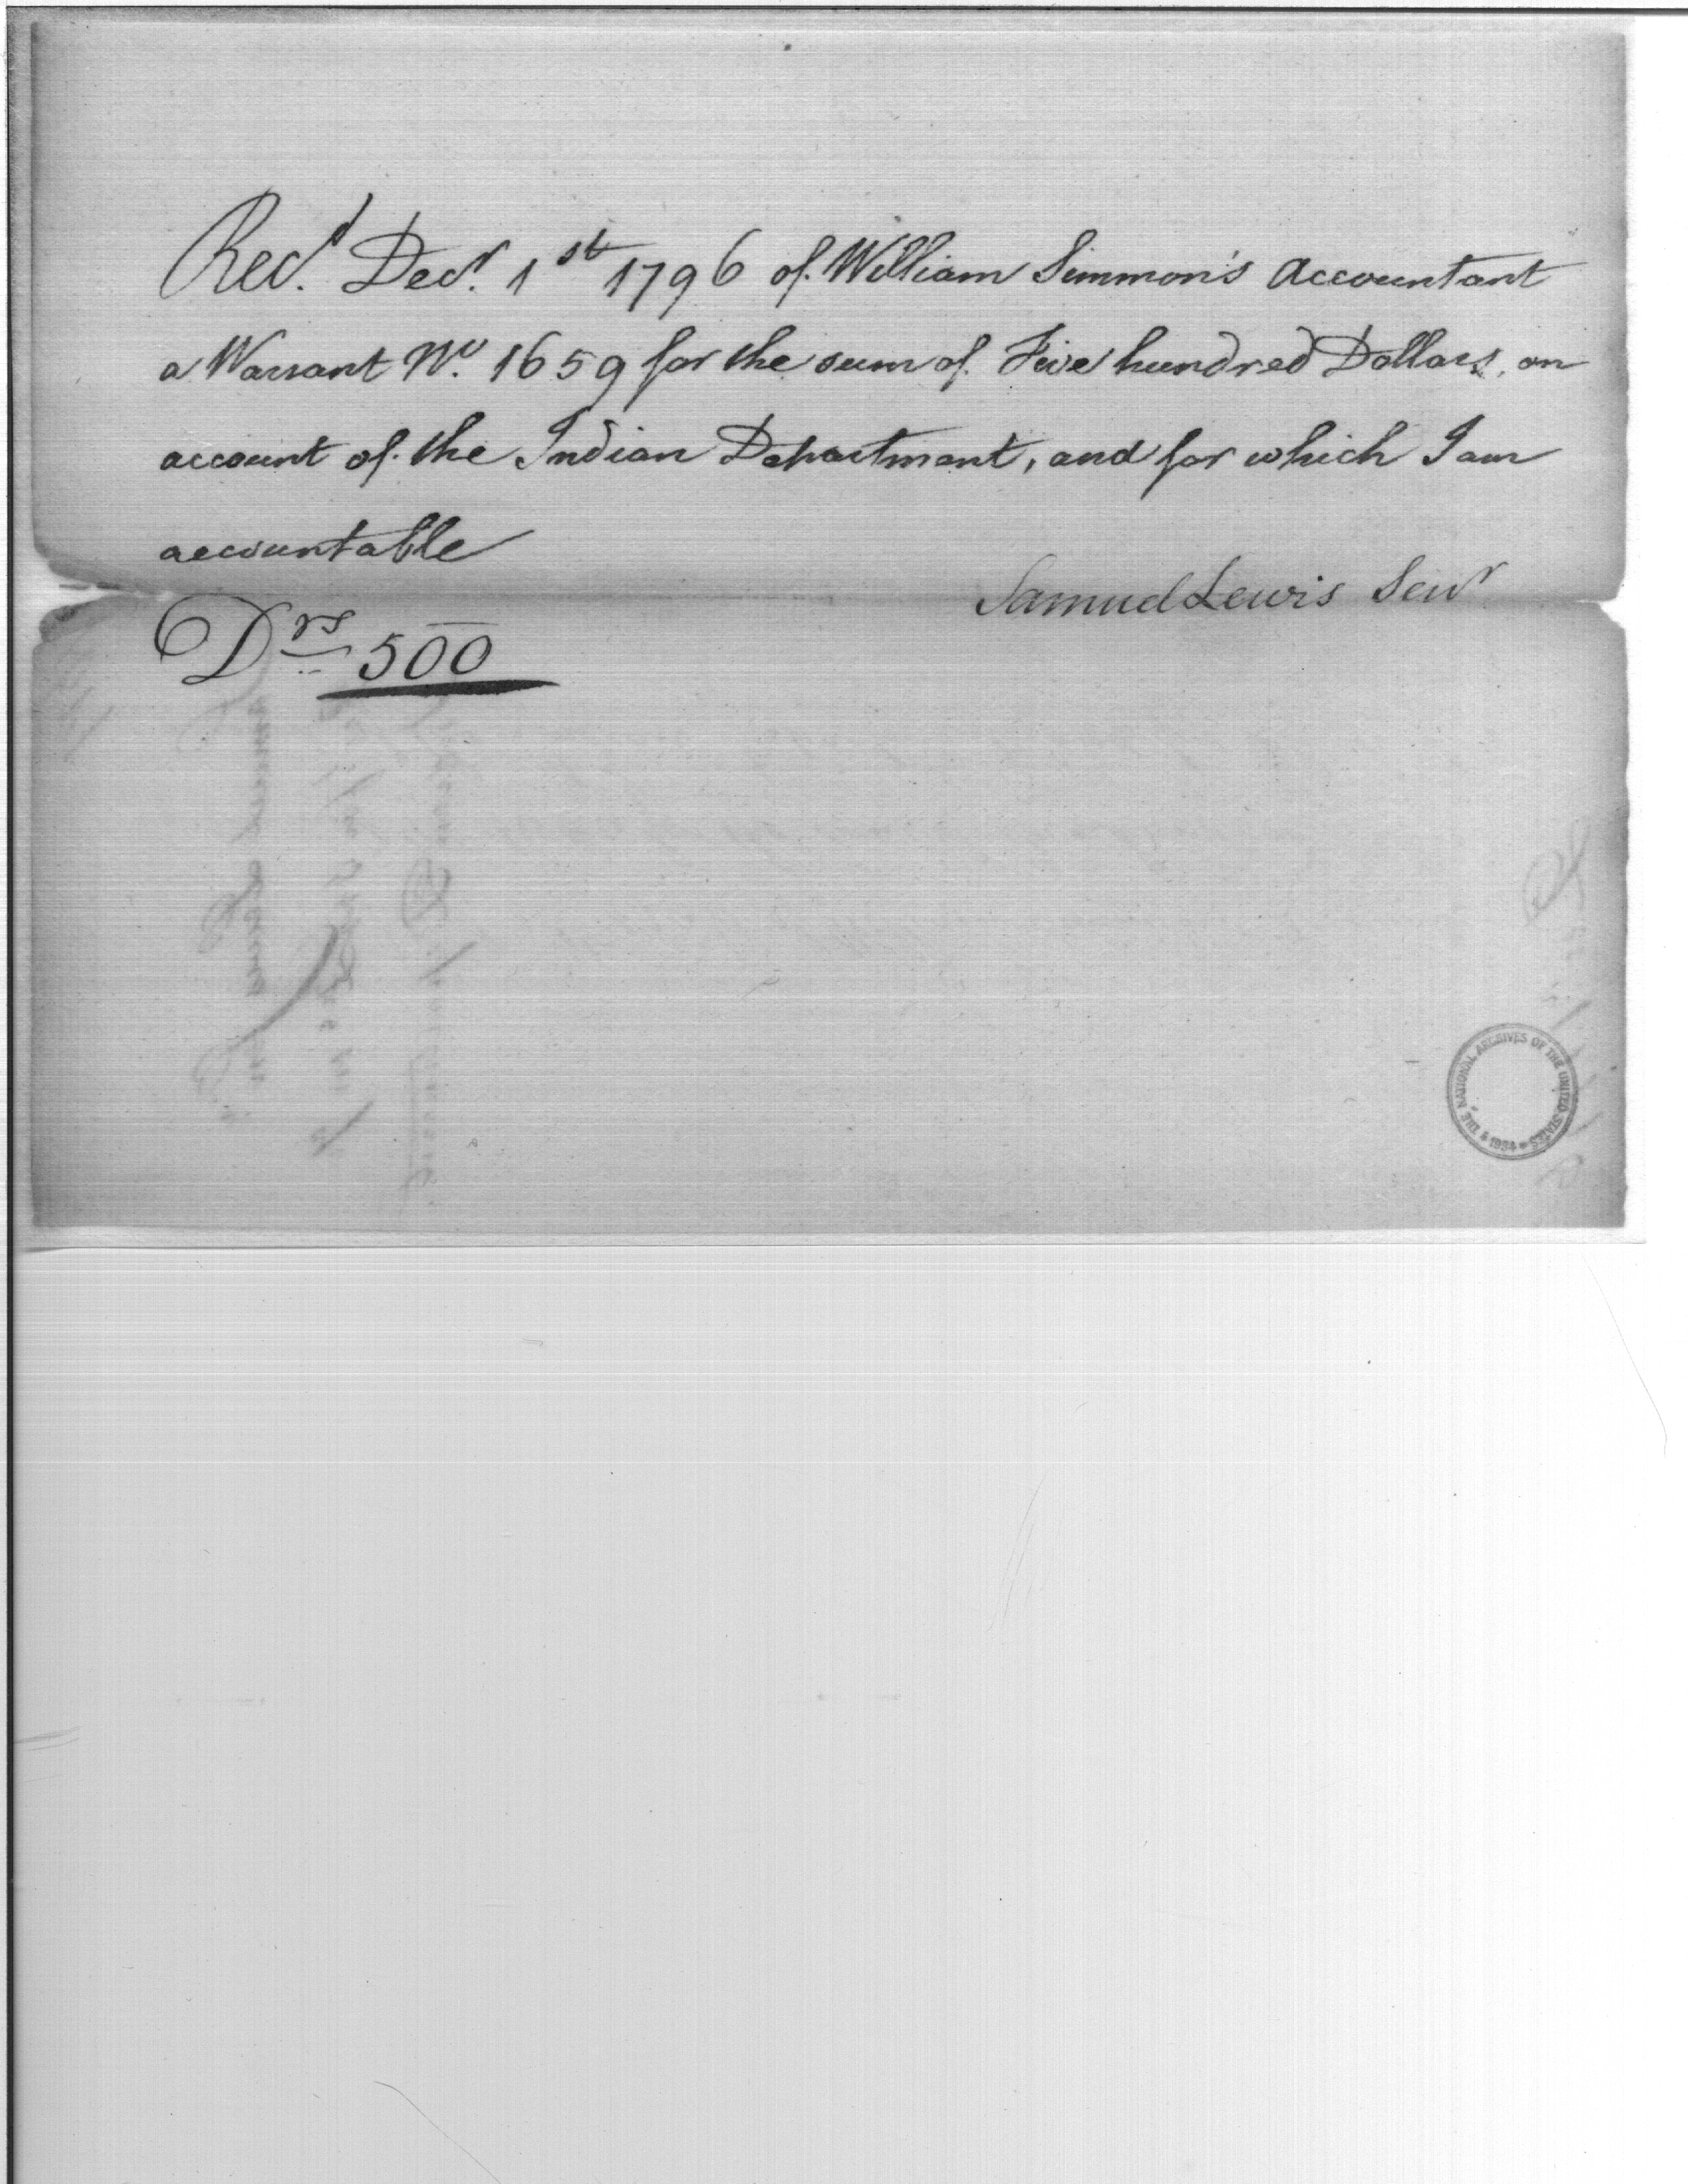 Recd. Decr. 1st 1796 of William Simmon's Accountant
a Warrant No. 1659 for the sum of Five hundred Dollars, on
account of the Indian Department, and for which I am
accountable
Samuel Lewis Senr
Drs 500
THE NATIONAL ARCHIVES OF THE UNITED STATES 1934